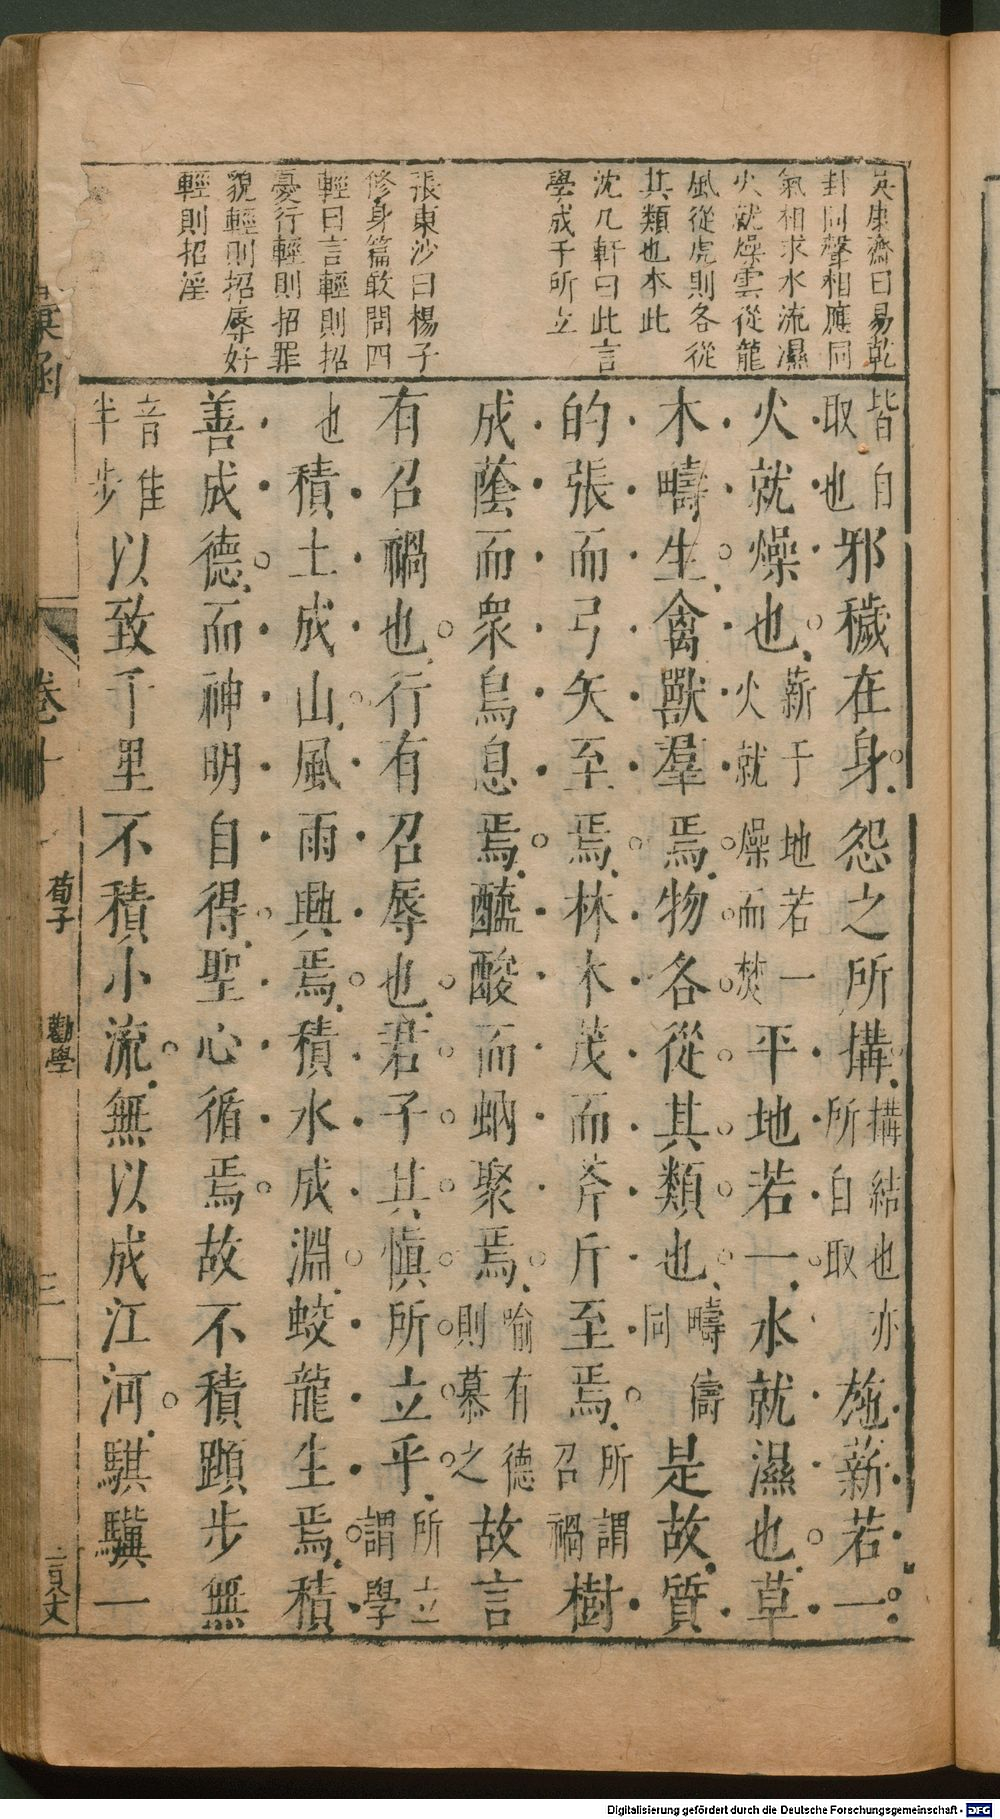 吳康齋曰易乾
卦同聲相應同
氣相求水流濕
火就燥雲從龍
風從虎則各從
其類也本此
沈几軒曰此言
學成于所立
張東沙曰楊子
修身篇敢問四
輕曰言輕則招
憂行輕則招罪
貌輕則招辱好
輕則招淫
皆自取也邪穢在身怨之所搆搆結也亦所自取施薪若一
火就燥也薪于地若一火就燥而焚平地若一水就濕也草
木疇生禽獸羣焉物各從其類也疇儔同是故質
的張而弓矢至焉林木茂而斧斤至焉所謂召禍樹
成蔭而眾鳥息焉醯酸而蚋聚焉喻有德則慕之故言
有召禍也行有召辱也君子其慎所立乎所立謂學
也積土成山風雨興焉積水成淵蛟龍生焉積
善成德而神明自得聖心循焉故不積蹞步無
音隹半步以致千里不積小流無以成江河騏驥一
彙函
卷十
荀子
勸學
三
Digitalisierung gefördert durch die Deutsche Forschungsgemeinschaft - DFG